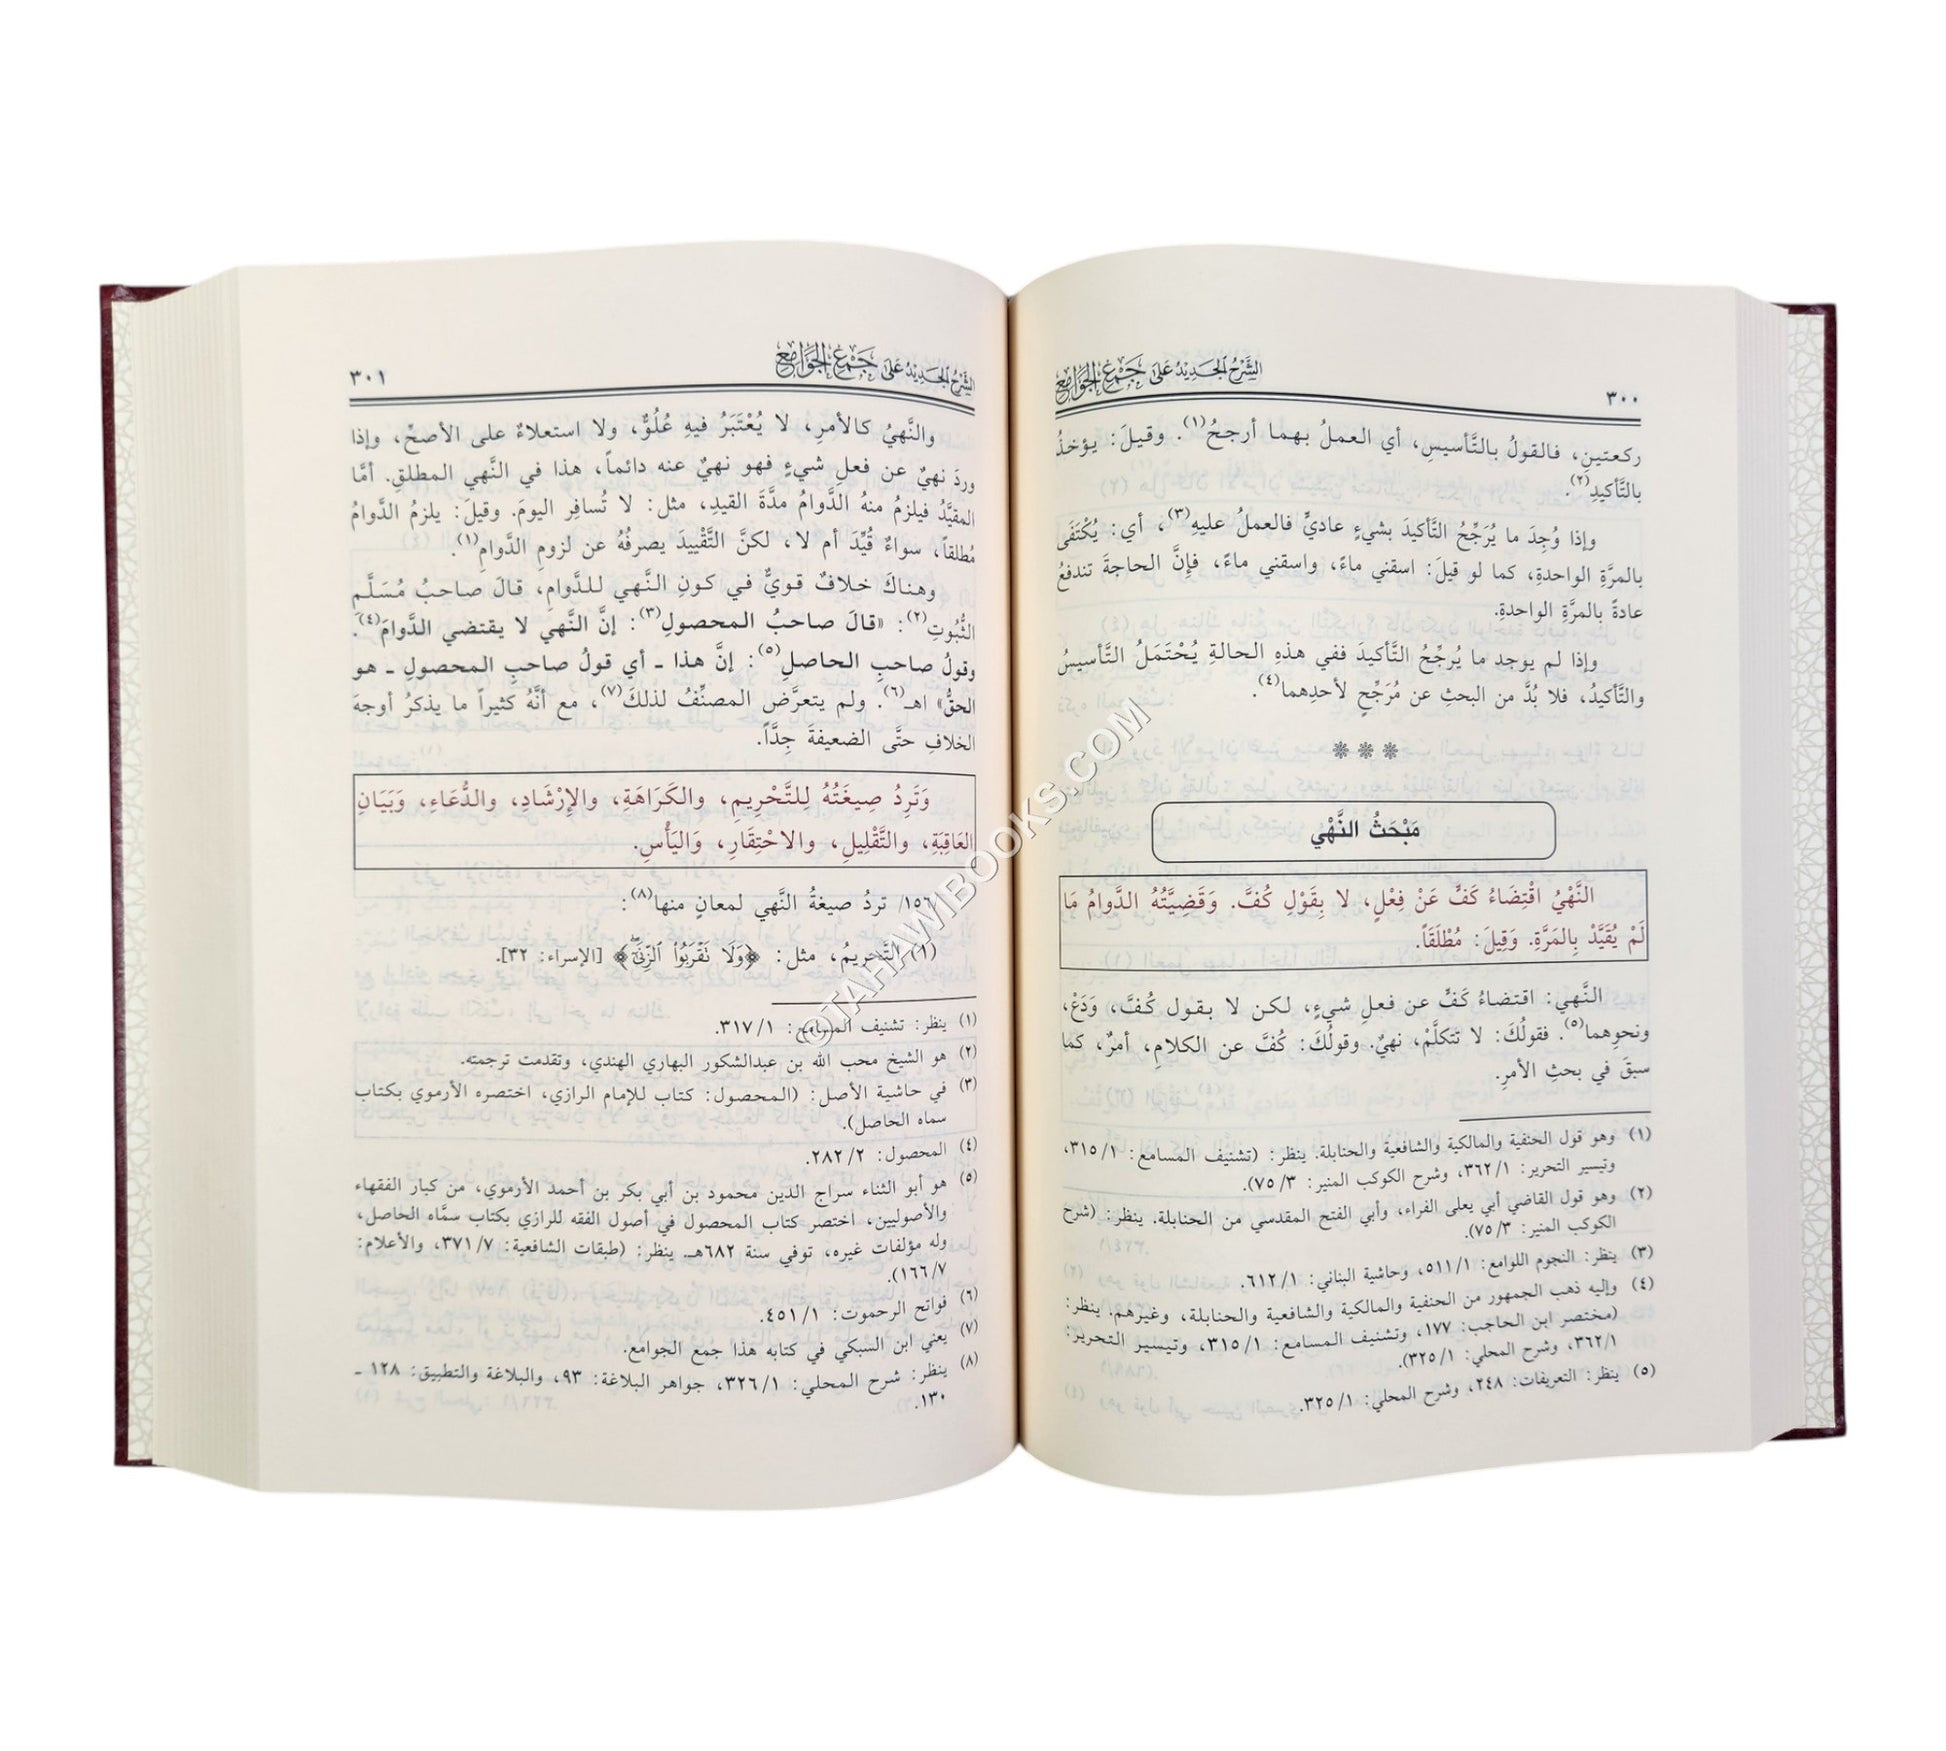 ٣٠٠
الشرح الجديد على جمع الجوامع
ركعتينِ، فالقولُ بالتَّأسيسِ، أي العملُ بهما أرجحُ(١). وقيلَ: يؤخذُ
بالتَّأكيدِ(٢).
وإذا وُجِدَ ما يُرَجِّحُ التَّأكيدَ بشيءٍ عاديٍّ فالعملُ عليهِ(٣)، أي: يُكْتَفَى
بالمرَّةِ الواحدةِ، كما لو قيلَ: اسقني ماءً، واسقني ماءً، فإنَّ الحاجةَ تندفعُ
عادةً بالمرَّةِ الواحدةِ.
وإذا لم يوجد ما يُرجِّحُ التَّأكيدَ ففي هذهِ الحالةِ يُحْتَمَلُ التَّأسيسُ
والتَّأكيدُ، فلا بُدَّ من البحثِ عن مُرَجِّحٍ لأحدِهما(٤).
مَبْحَثُ النَّهْي
النَّهْيُ اقْتِضَاءُ كَفٍّ عَنْ فِعْلٍ، لا بِقَوْلِ كُفَّ. وَقَضِيَّتُهُ الدَّوامُ مَا
لَمْ يُقَيَّدْ بِالمَرَّةِ. وَقِيلَ: مُطْلَقَاً.
النَّهي: اقتضاءُ كَفٍّ عن فعلِ شيءٍ، لكن لا بقول كُفَّ، وَدَعْ،
ونحوِهما(٥). فقولُكَ: لا تتكلَّمْ، نهيٌ. وقولُكَ: كُفَّ عن الكلامِ، أمرٌ، كما
سبقَ في بحثِ الأمرِ.
(١) وهو قول الحنفية والمالكية والشافعية والحنابلة. ينظر: (تشنيف المسامع: ٣١٥/١،
وتيسير التحرير: ٣٦٢/١، وشرح الكوكب المنير: ٧٥/٣).
(٢) وهو قول القاضي أبي يعلى الفراء، وأبي الفتح المقدسي من الحنابلة. ينظر: (شرح
الكوكب المنير: ٧٥/٣).
(٣) ينظر: النجوم اللوامع: ٥١١/١، وحاشية البناني: ٦١٢/١.
(٤) وإليه ذهب الجمهور من الحنفية والمالكية والشافعية والحنابلة، وغيرهم. ينظر:
(مختصر ابن الحاجب: ١٧٧، وتشنيف المسامع: ٣١٥/١، وتيسير التحرير:
٣٦٢/١، وشرح المحلي: ٣٢٥/١).
(٥) ينظر: التعريفات: ٢٤٨، وشرح المحلي: ٣٢٥/١.
الشرح الجديد على جمع الجوامع
٣٠١
والنَّهيُ كالأمرِ، لا يُعْتَبَرُ فيهِ عُلُوٌّ، ولا استعلاءٌ على الأصحِّ، وإذا
وردَ نهيٌ عن فعلِ شيءٍ فهو نهيٌ عنه دائماً، هذا في النَّهي المطلقِ. أمَّا
المقيَّدُ فيلزمُ منهُ الدَّوامُ مدَّةَ القيدِ، مثل: لا تُسافِر اليومَ. وقيلَ: يلزمُ الدَّوامُ
مُطلقاً، سواءٌ قُيِّدَ أم لا، لكنَّ التَّقْييدَ يصرفُهُ عن لزومِ الدَّوامِ(١).
وهناكَ خلافٌ قويٌّ في كونِ النَّهي للدَّوامِ، قالَ صاحبُ مُسَلَّم
الثُّبُوتِ(٢): «قالَ صاحبُ المحصولِ(٣): إنَّ النَّهي لا يقتضي الدَّوامَ(٤).
وقولُ صاحبِ الحاصلِ(٥): إنَّ هذا ـ أي قولُ صاحبِ المحصولِ ـ هو
الحقُّ» اهـ(٦). ولم يتعرَّض المصنِّفُ لذلكَ(٧)، مع أنَّهُ كثيراً ما يذكرُ أوجهَ
الخلافِ حتَّى الضعيفةَ جِدَّاً.
وَتَرِدُ صِيغَتُهُ لِلتَّحْرِيمِ، والكَرَاهَةِ، والإِرْشَادِ، والدُّعَاءِ، وَبَيَانِ
العَاقِبَةِ، والتَّقْلِيلِ، والاحْتِقَارِ، وَاليَأْسِ.
/١٥٦/ تردُ صيغةُ النَّهي لمعانٍ منها(٨):
(١) التَّحريمُ، مثل: ﴿وَلَا تَقْرَبُوا۟ ٱلزِّنَىٰٓ﴾ [الإسراء: ٣٢].
(١) ينظر: تشنيف المسامع: ٣١٧/١.
(٢) هو الشيخ محب الله بن عبدالشكور البهاري الهندي، وتقدمت ترجمته.
(٣) في حاشية الأصل: (المحصول: كتاب للإمام الرازي، اختصره الأرموي بكتاب
سماه الحاصل).
(٤) المحصول: ٢٨٢/٢.
(٥) هو أبو الثناء سراج الدين محمود بن أبي بكر بن أحمد الأرموي، من كبار الفقهاء
والأصوليين، اختصر كتاب المحصول في أصول الفقه للرازي بكتاب سمَّاه الحاصل،
وله مؤلفات غيره، توفي سنة ٦٨٢هـ. ينظر: (طبقات الشافعية: ٣٧١/٧، والأعلام:
١٦٦/٧).
(٦) فواتح الرحموت: ٤٥١/١.
(٧) يعني ابن السبكي في كتابه هذا جمع الجوامع.
(٨) ينظر: شرح المحلي: ٣٢٦/١، جواهر البلاغة: ٩٣، والبلاغة والتطبيق: ١٢٨ ـ
١٣٠.
©TAHAWIBOOKS.COM